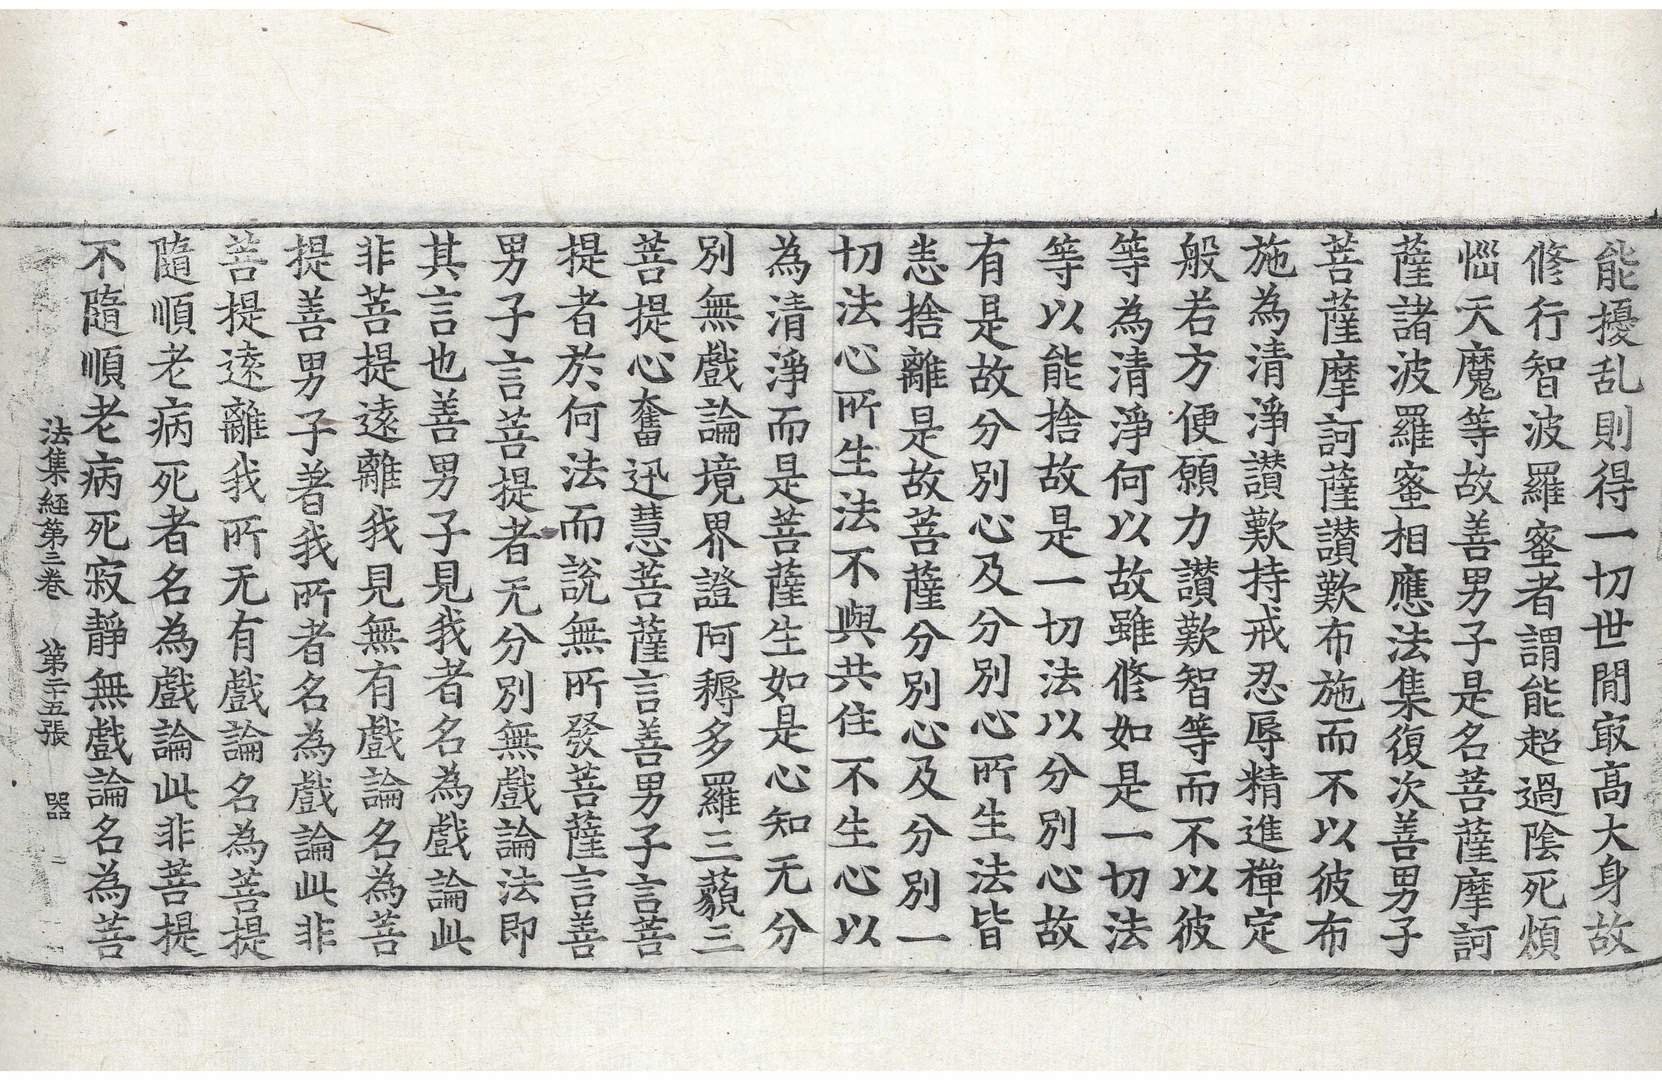 能擾乱則得一切世間㝡高大身故
脩行智波羅蜜者謂能超過陰死煩
惱天魔等故善男子是名菩薩摩訶
薩諸波羅蜜相應法集復次善男子
菩薩摩訶薩讃歎布施而不以彼布
施為清淨讃歎持戒忍辱精進禪定
般若方便願力讃歎智等而不以彼
等為清淨何以故雖脩如是一切法
等以能捨故是一切法以分別心故
有是故分別心及分別心所生法皆
悉捨離是故菩薩分別心及分別一
切法心所生法不與共住不生心以
為清淨而是菩薩生如是心知无分
別無戲論境界證阿耨多羅三藐三
菩提心奮迅慧菩薩言善男子言菩
提者於何法而說無所發菩薩言善
男子言菩提者无分別無戲論法即
其言也善男子見我者名為戲論此
非菩提遠離我見無有戲論名為菩
提善男子著我所者名為戲論此非
菩提遠離我所无有戲論名為菩提
隨順老病死者名為戲論此非菩提
不隨順老病死寂靜無戲論名為菩
法集經第三卷 第二十五張 器